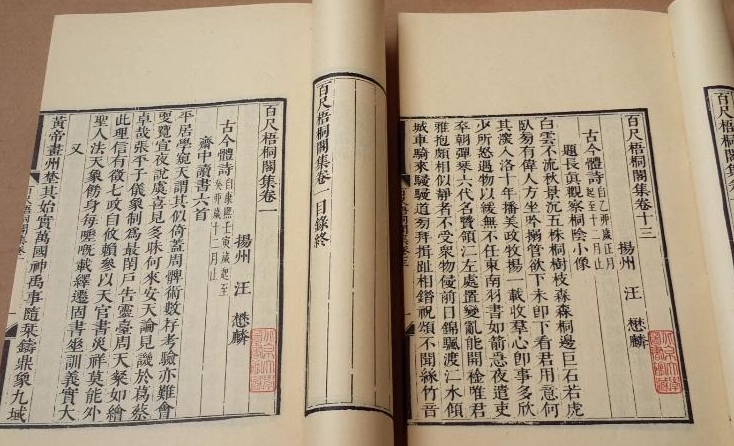 百尺梧桐閣集卷一目錄終
百尺梧桐閣集卷一
揚州 汪 懋麟
古今體詩自康熙壬寅歲起至癸卯歲十二月止
齋中讀書六首
平居學窺天謂其似倚蓋周髀術數存考驗亦難會
更覽宣夜說虞喜見多昧何來安天論見譏於葛蔡
卓哉張平子儀象制為最閉戶告靈臺周天粲如繪
此理信有徵七政自攸賴參以天官書災祥莫能外
聖人法天象飭身每
載繹遷固書坐訓義實大
又
黃帝畫州埜其始實萬國神禹事隨栞鑄鼎象九域
百尺梧桐閣集卷十三
揚州 汪 懋麟
古今體詩自乙卯歲正月起至十二月止
題長真觀察桐陰小像
白雲不流秋景沉五株桐樹枝森森桐邊巨石若虎
臥刻有偉人方坐吟
管欲下未卽下看君用意何
其深人洛十年播美政牧揚一載收羣心卽事多欣
少所怒遇物以緩無不任東南羽書如箭急夜遣吏
卒朝彈琴六代名賢領江左處置變亂能開襟唯君
雅抱頗相似靜者不受衆物侵前日錦颿渡江水傾
城車騎來駸駸道旁拜揖趾相錯祝頌不聞絲竹音